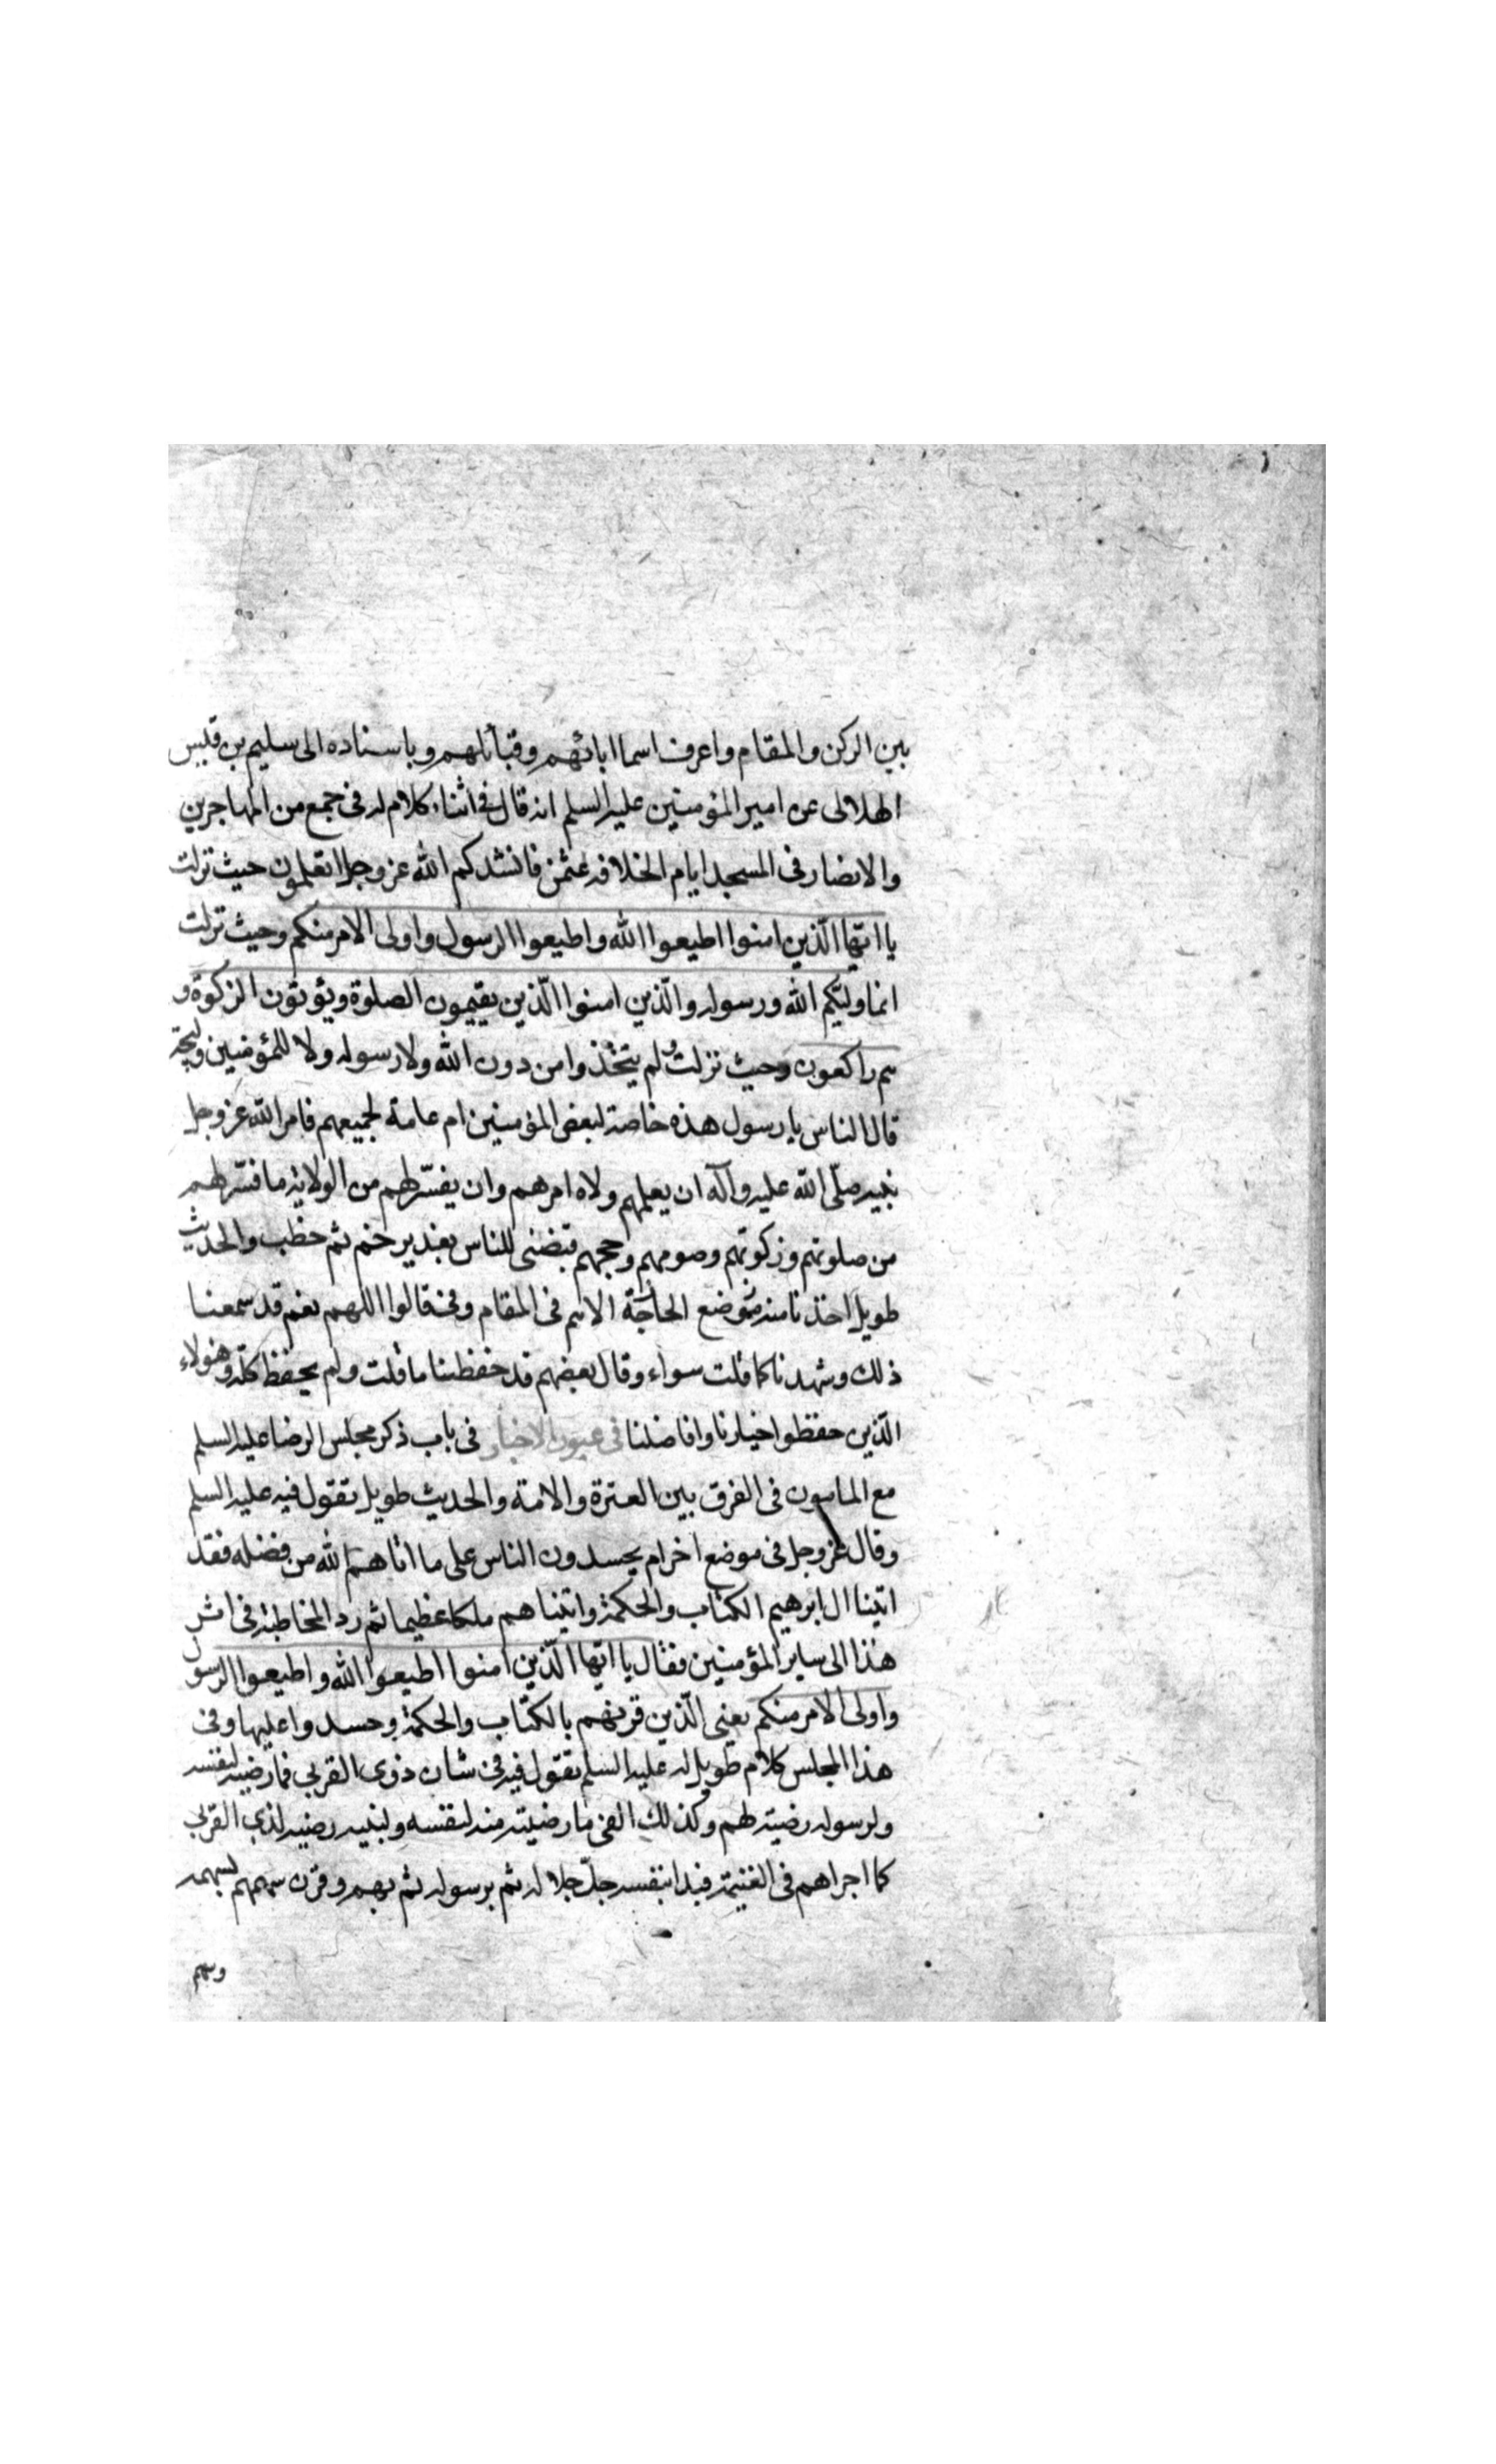 بين الركن والمقام واعرف اسما ابائهم وقبائلهم وباسناده الى سليم بن قيس
الهلالى عن امير المؤمنين عليه السلم انه قال فى اثناء كلام له فى جمع من المهاجرين
والانصار فى المسجد ايام الخلافه عثمن فانشدكم الله عز وجل اتعلمون حيث نزلت
يا ايّها الّذين امنوا اطيعوا الله واطيعوا الرسول واولى الامر منكم وحيث نزلت
انما وليّكم الله ورسوله والّذين امنوا الّذين يقيمون الصلوة ويؤتون الزكوة و
هم راكعون وحيث نزلت ولم يتخذوا من دون الله ولا رسوله ولا للمؤمنين وليجة
قال الناس يا رسول هذه خاصة لبعض المؤمنين ام عامة لجميعهم فامر الله عز وجل
نبيه صلّى الله عليه وآله ان يعلمهم ولاه امرهم وان يفسّر لهم من الولاية ما فسّر لهم
من صلوتهم وزكوتهم وصومهم وحجهم فبضنى للناس بغدير خم ثم خطب والحديث
طويل اخذنا منه موضع الحاجة الاسم فى المقام وفى قالوا اللهم نعم قد سمعنا
ذلك وشهدنا كما قلت سواء وقال بعضهم قد حفظنا ما قلت ولم يحفظ كلّه وهولاء
الّذين حفظوا اخيارنا وافاضلنا فى عيون الاخبار فى باب ذكر مجلس الرضا عليه السلم
مع المامون فى الفرق بين العترة والامة والحديث طويل يقول فيه عليه السلم
وقال عز وجل فى موضع اخر ام يحسدون الناس على ما اتاهم الله من فضله فقد
اتينا ال ابرهيم الكتاب والحكمة واتيناهم ملكا عظيما ثم رد المخاطبة فى اثر
هذا الى ساير المؤمنين فقال يا ايّها الّذين امنوا اطيعوا الله واطيعوا الرسول
واولى الامر منكم يعنى الّذين قرنهم بالكتاب والحكمة وحسدوا عليها وفى
هذا المجلس كلام طويل له عليه السلم يقول فيه فى شان ذوى القربى فما رضيه لنفسه
ولرسوله رضيه لهم وكذلك الفى ما رضيته منه لنفسه ولنبيه رضيه لذى القربى
كما اجراهم فى الغنيمة فبدا بنفسه جلّ جلاله ثم برسوله ثم بهم وقرن سهمهم بسهمه
وسهم